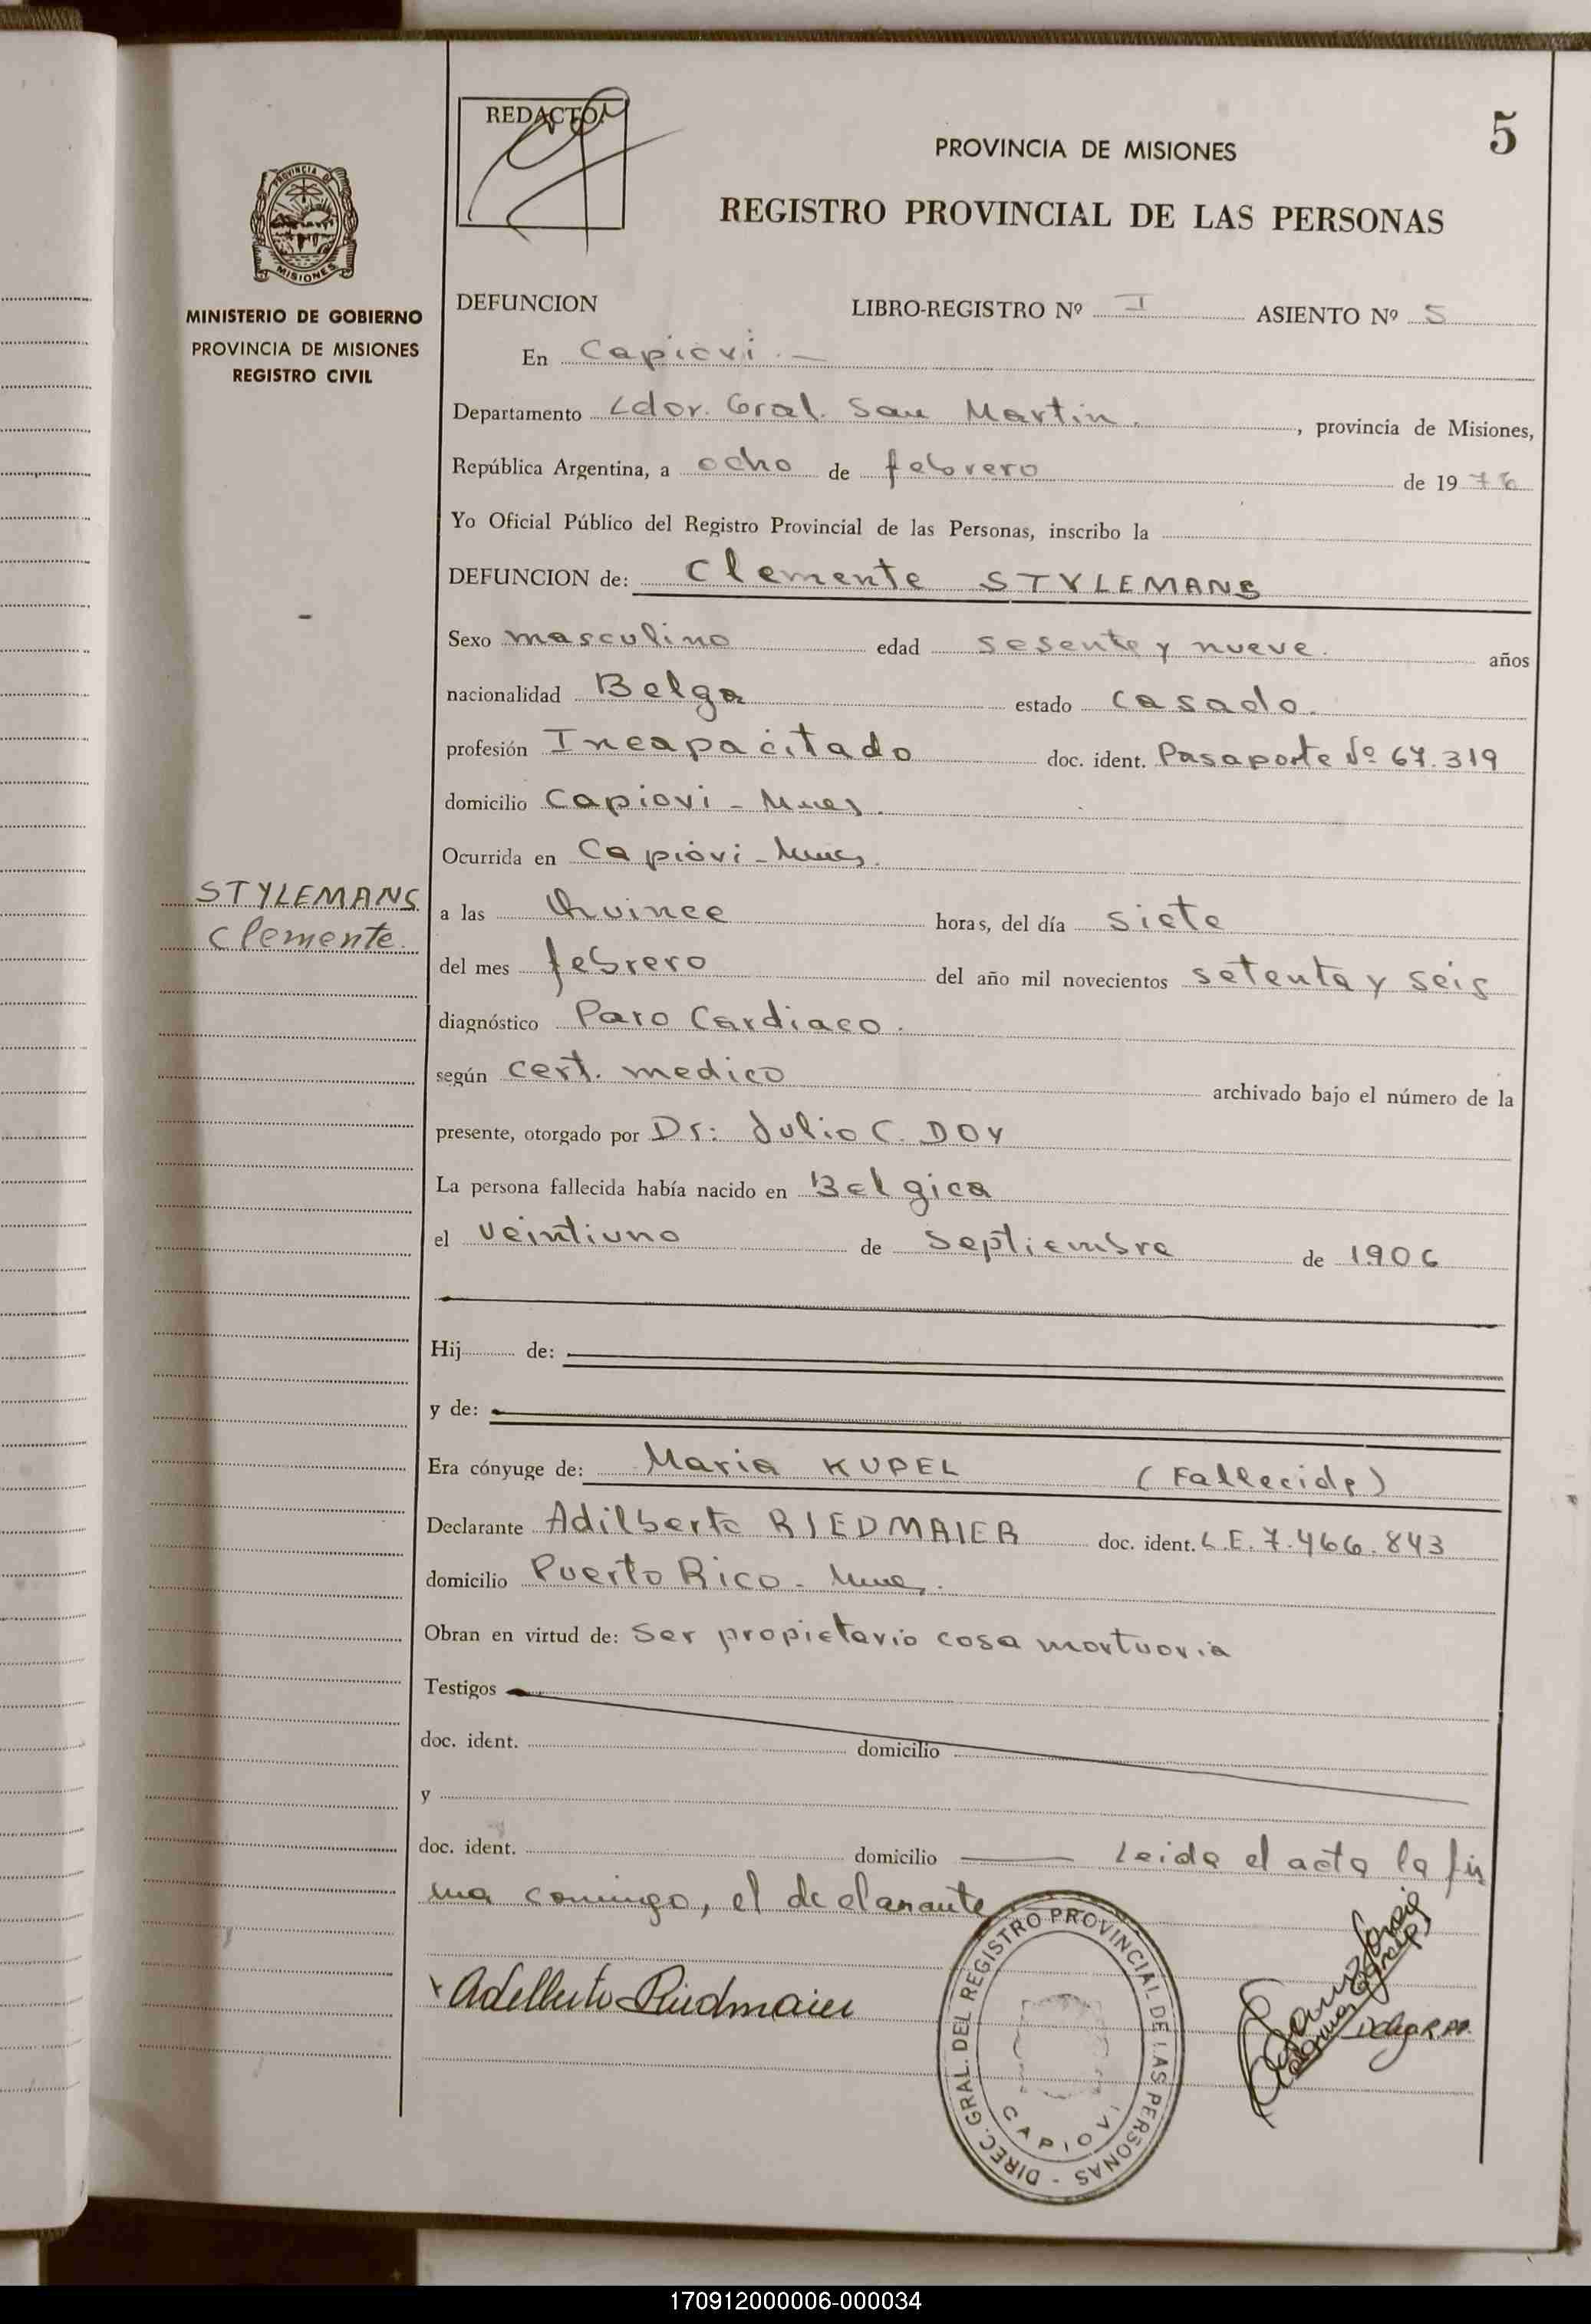 REDACTOR
5
PROVINCIA DE MISIONES
REGISTRO PROVINCIAL DE LAS PERSONAS
PROVINCIA DE
MISIONES
MINISTERIO DE GOBIERNO
PROVINCIA DE MISIONES
REGISTRO CIVIL
DEFUNCION LIBRO-REGISTRO Nº I ASIENTO Nº 5
En Capiovi. —
Departamento Ldor. Gral. San Martin. , provincia de Misiones,
República Argentina, a ocho de febrero de 1976
Yo Oficial Público del Registro Provincial de las Personas, inscribo la
DEFUNCION de: Clemente STYLEMANS
Sexo masculino edad sesenta y nueve. años
nacionalidad Belga estado casado.
profesión Incapacitado doc. ident. Pasaporte Nº 67.319
domicilio Capiovi - Mnes.
Ocurrida en Capiovi - Mnes.
STYLEMANS
Clemente.
a las Quince horas, del día siete
del mes febrero del año mil novecientos setenta y seis
diagnóstico Paro Cardiaco.
según cert. medico archivado bajo el número de la
presente, otorgado por Dr: Julio C. DOY
La persona fallecida había nacido en Belgica
el veintiuno de septiembre de 1906
Hij de:
y de:
Era cónyuge de: Maria KUPEL (Fallecida)
Declarante Adilberto RIEDMAIER doc. ident. L.E. 7.466.843
domicilio Puerto Rico - Mnes.
Obran en virtud de: Ser propietario casa mortuoria
Testigos
doc. ident. domicilio
y
doc. ident. domicilio — Leida el acta la fir
ma conmigo, el declarante
Adelberto Riedmaier
DIREC. GRAL. DEL REGISTRO PROVINCIAL DE LAS PERSONAS -
CAPIOVI
170912000006-000034